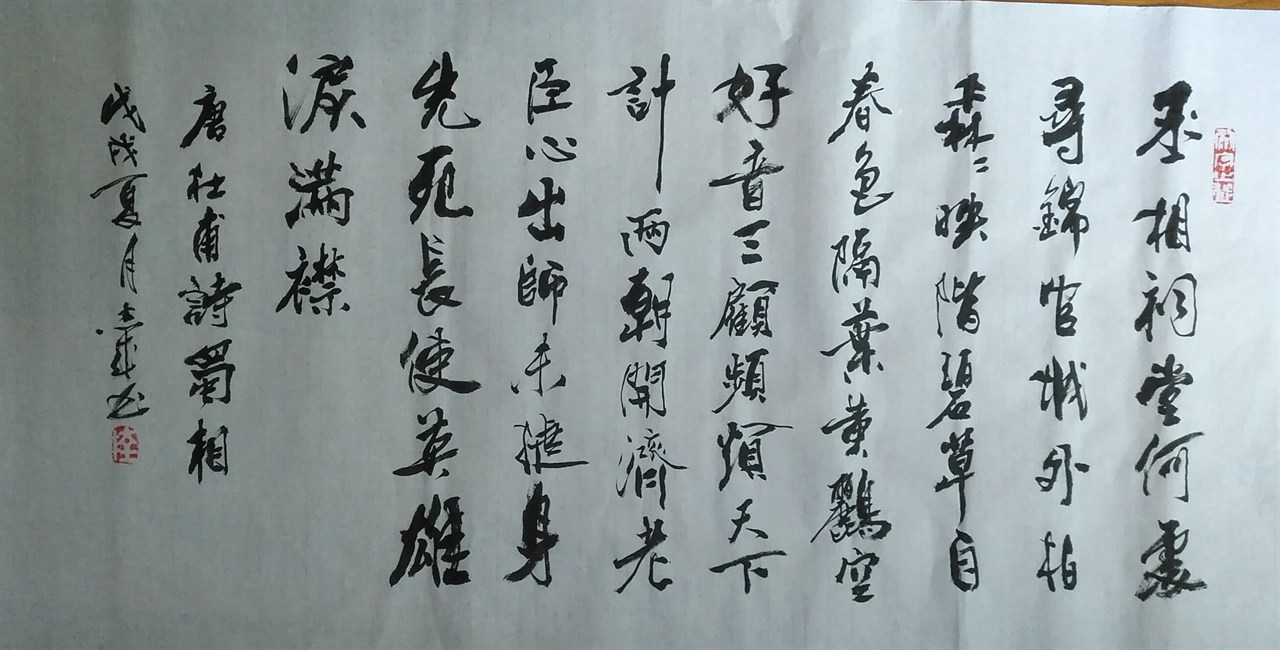 丞相祠堂何處
尋錦官城外柏
森二映階碧草自
春色隔葉黄鸝空
好音三顧頻煩天下
計兩朝開濟老
臣心出師未捷身
先死長使英雄
淚滿襟
唐杜甫詩蜀相
戊戌夏月